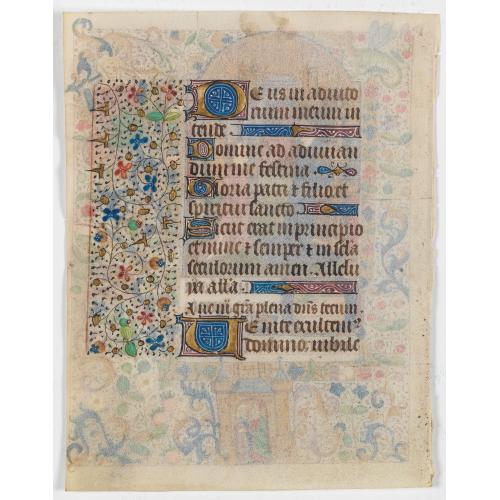 Deus in adiuto
rium meum in
tende
Domine ad adiuuan
dum me festina
Gloria patri et filio et
spiritui sancto
Sicut erat in principio
et nunc et semper et in scla
seculorum amen. Allelu
ya alla
Aue mͣ gra plena dns tecum.
Uenite exultem⁹
domino, iubile